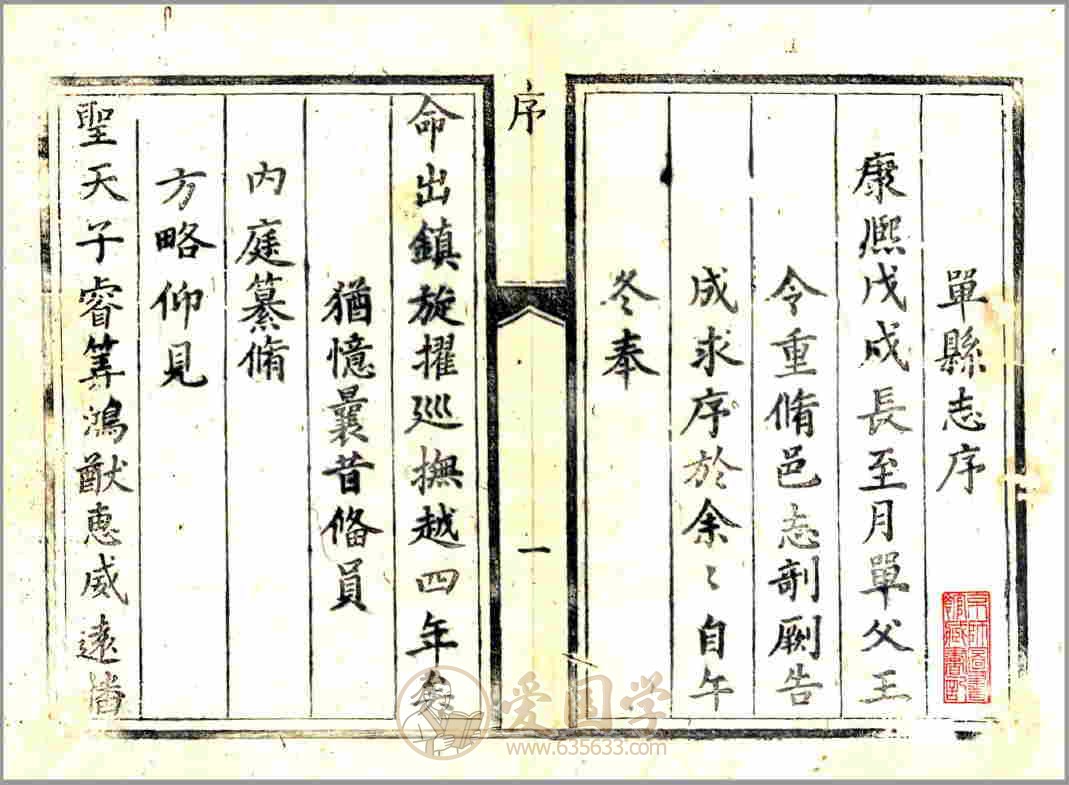 單縣志序
康熈戊戍長至月單父王
令重脩邑志剞劂告
成求序於余〻自午
冬奉
序
一
命出鎮旋擢巡撫越四年矣
猶憶曩昔俻員
内庭纂脩
方略仰見
聖天子睿筭鴻猷惠威遠播
京師圖書館藏書記
爱国学
www.635633.com